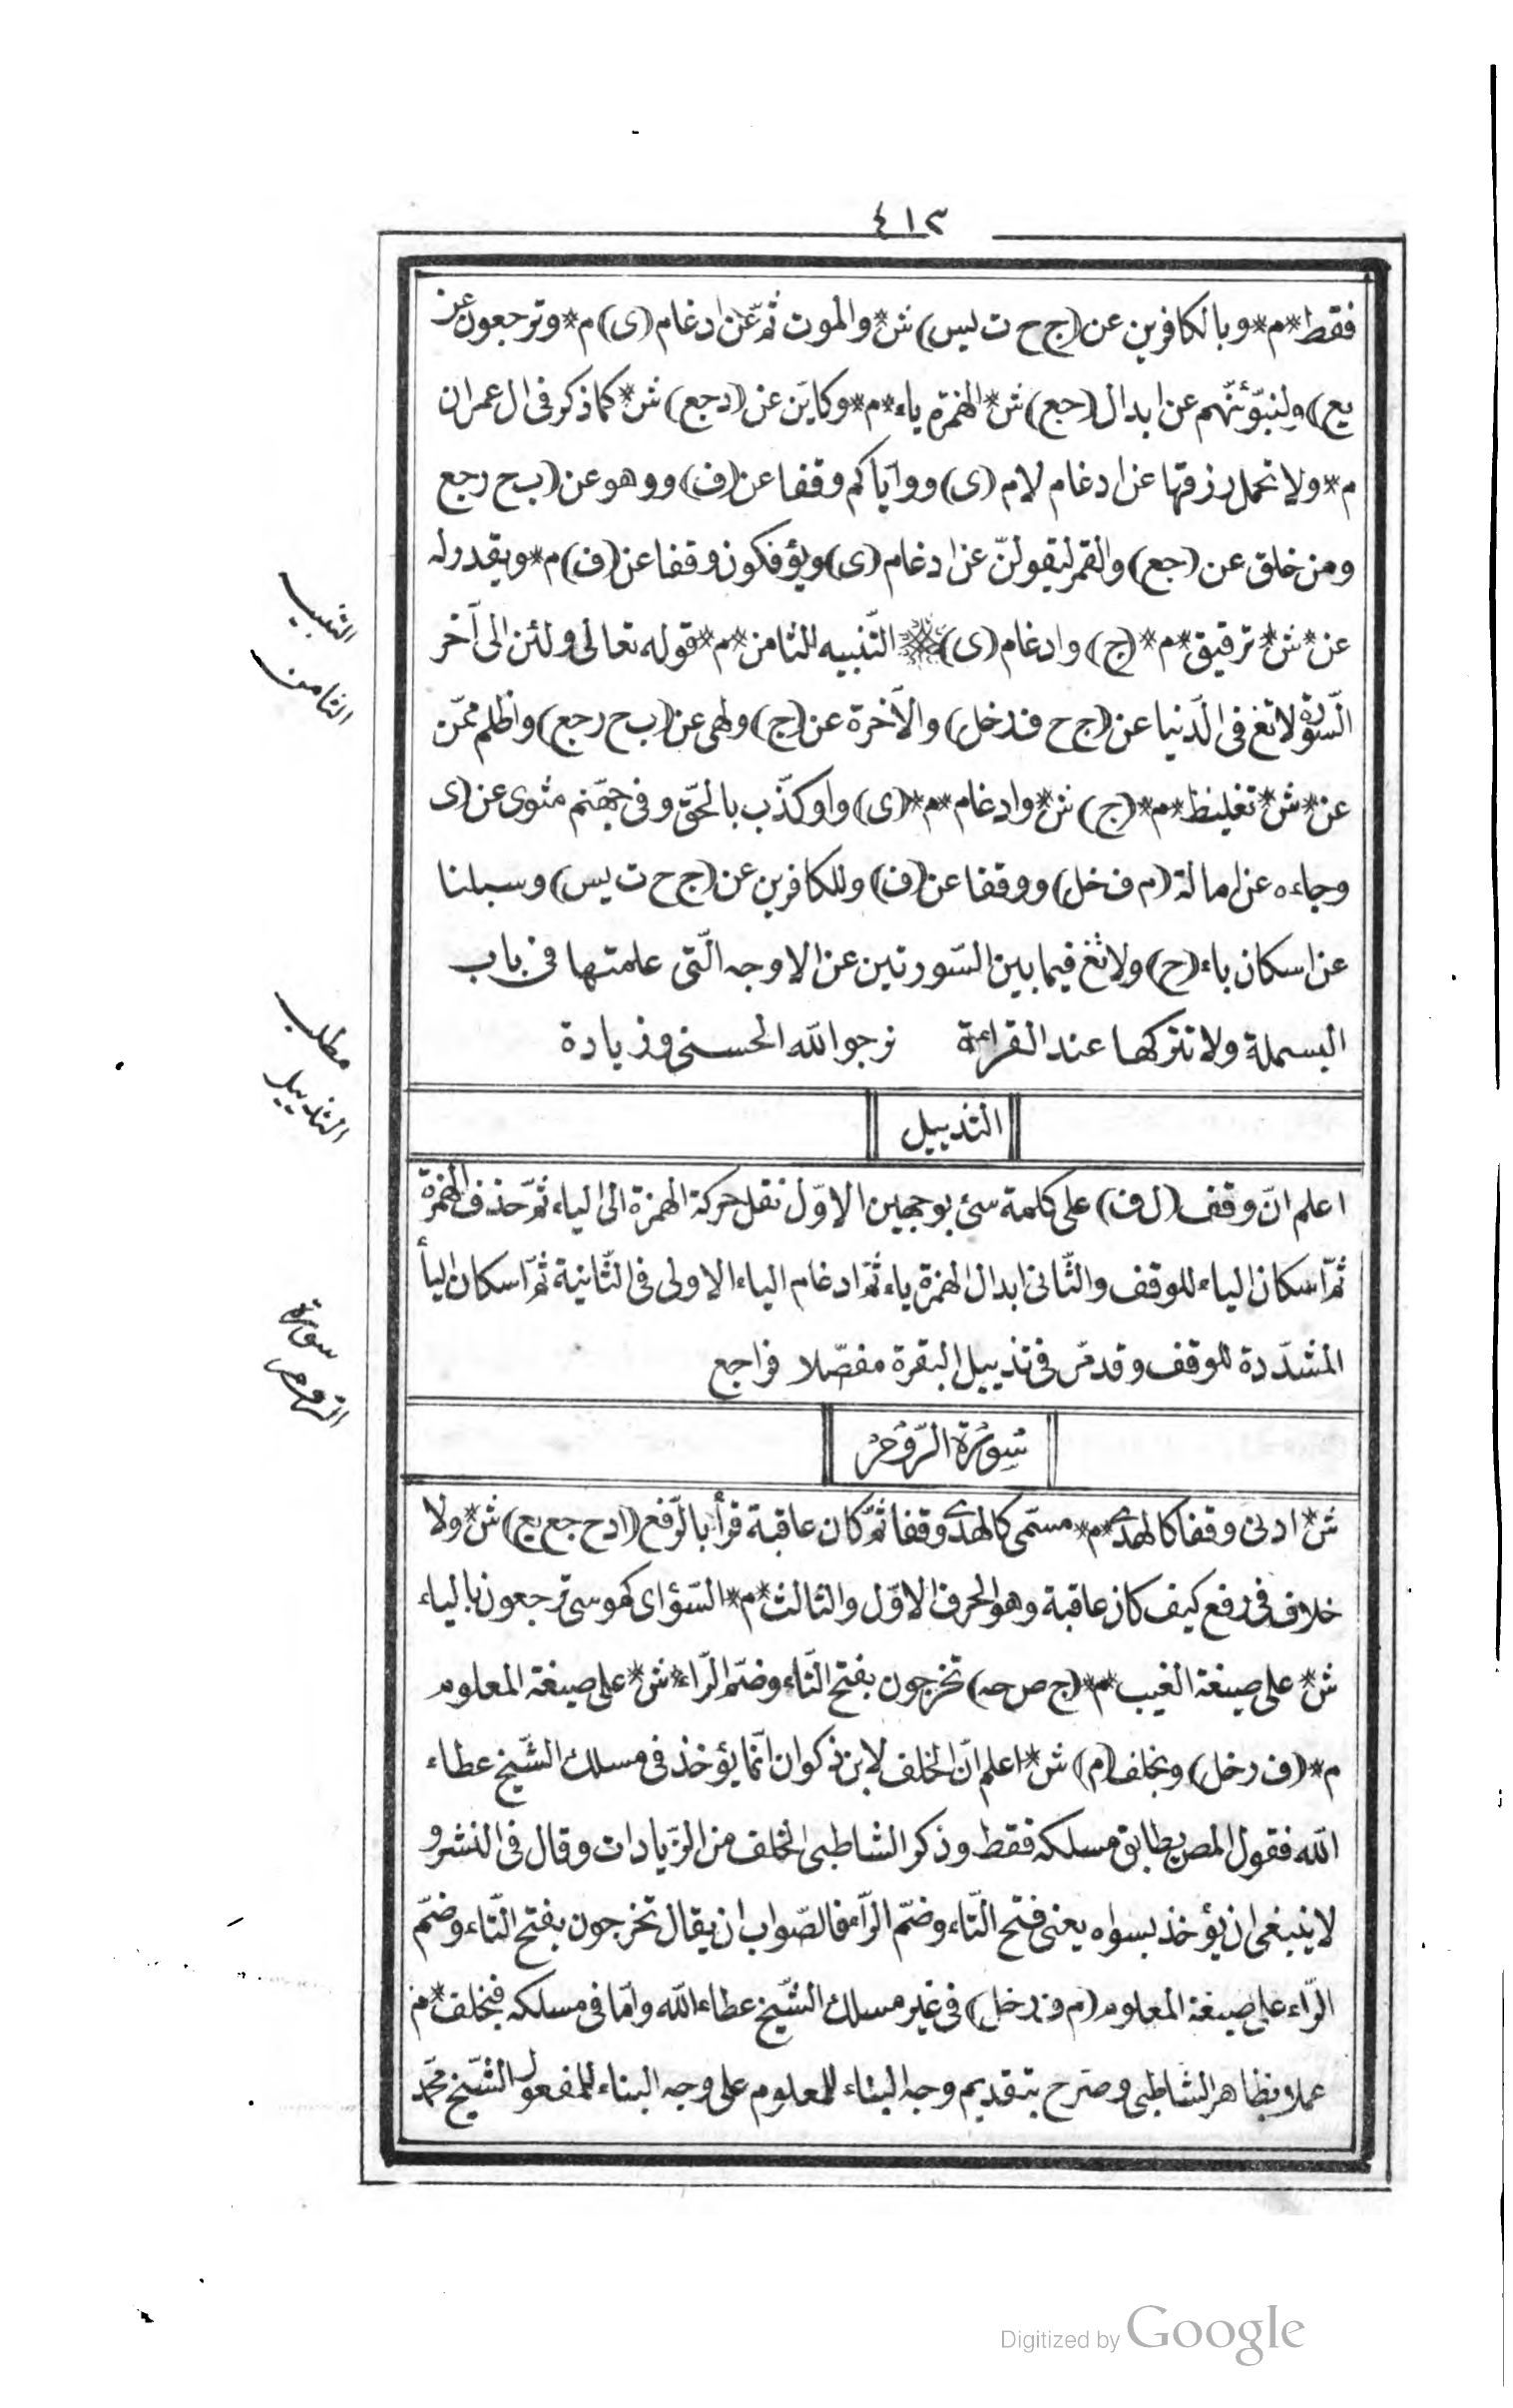 ٤١٣
فقط*م*وبالكافرين عن(ج ح ت يس)ش*والموت ثمّ عن ادغام(ى)م*وترجعون عن
يع)ولنبوّئنّهم عن ابدال(جع)ش*الهمزة ياء*م*وكايّن عن(دجع)ش*كما ذكر فى ال عمران
م*ولا تحمل رزقها عن ادغام لام(ى)ووايّاكم وقفا عن(ف)ووهو عن(ب ح رجع
ومن خلق عن(جع)والقمر ليقولنّ عن ادغام(ى)ويؤفكون وقفا عن(ف)م*ويقدر له
عن*ش*ترقيق*م*(ج)وادغام(ى) التّنبيه الثامن*م*قوله تعالى ولئن الى آخر
السّورة لا تغ فى الدّنيا عن(ج ح ف رخل)والآخرة عن(ج)ولهى عن(ب ح رجع)واظلم ممّن
عن*ش*تغليظ*م*(ج)ش*وادغام*م*(ى)واو كذّب بالحقّ وفى جهنّم مثوى عن(ى
وجاءه عن امالة(م ف خل)ووقفا عن(ف)وللكافرين عن(ج ح ت يس)وسبلنا
عن اسكان باء(ح)ولا تغ فيما بين السّورتين عن الاوجه الّتى علمتها فى باب
البسملة ولا تتركها عند القراءة نرجو الله الحسنى وزيادة
التذييل
اعلم انّ وقف(ل ف)على كلمة سئ بوجهين الاوّل نقل حركة الهمزة الى الياء ثمّ حذف الهمزة
ثمّ اسكان الياء للوقف والثّانى ابدال الهمزة ياء ثمّ ادغام الياء الاولى فى الثّانية ثمّ اسكان اليأ
المشدّدة للوقف وقد مرّ فى تذييل البقرة مفصّلا فراجع
سورة الرّوم
ش*ادنى وقفا كالهدى*م*مسمّى كالهدى وقفا ثمّ كان عاقبة قرأ بالرّفع(ادح جع يع)ش*ولا
خلاف فى رفع كيف كان عاقبة وهو الحرف الاوّل والثالث*م*السّؤاى كموسى ترجعون بالياء
ش*على صيغة الغيب*م*(ج ص حه)تخرجون بفتح التّاء وضمّ الرّاء*ش*على صيغة المعلوم
م*(ف رخل)وبخلف(م)ش*اعلم انّ الخلف لابن ذكوان انّما يؤخذ فى مسلك الشّيخ عطاء
الله فقول المص يطابق مسلكه فقط وذكر الشاطبى الخلف من الزّيادات وقال فى النشر و
لا ينبغى ان يؤخذ بسواه يعنى فتح التّاء وضمّ الرّاء فالصّواب ان يقال تخرجون بفتح التّاء وضمّ
الرّاء على صيغة المعلوم(م ف رخل)فى غير مسلك الشّيخ عطاء الله وامّا فى مسلكه فبخلف*م
عملا بظاهر الشاطبى وصرّح بتقديم وجه البناء للمعلوم على وجه البناء للمفعول الشّيخ محمّد
التنبيه
الثامن
مطلب
التذييل
سورة
الرّوم
Digitized by Google